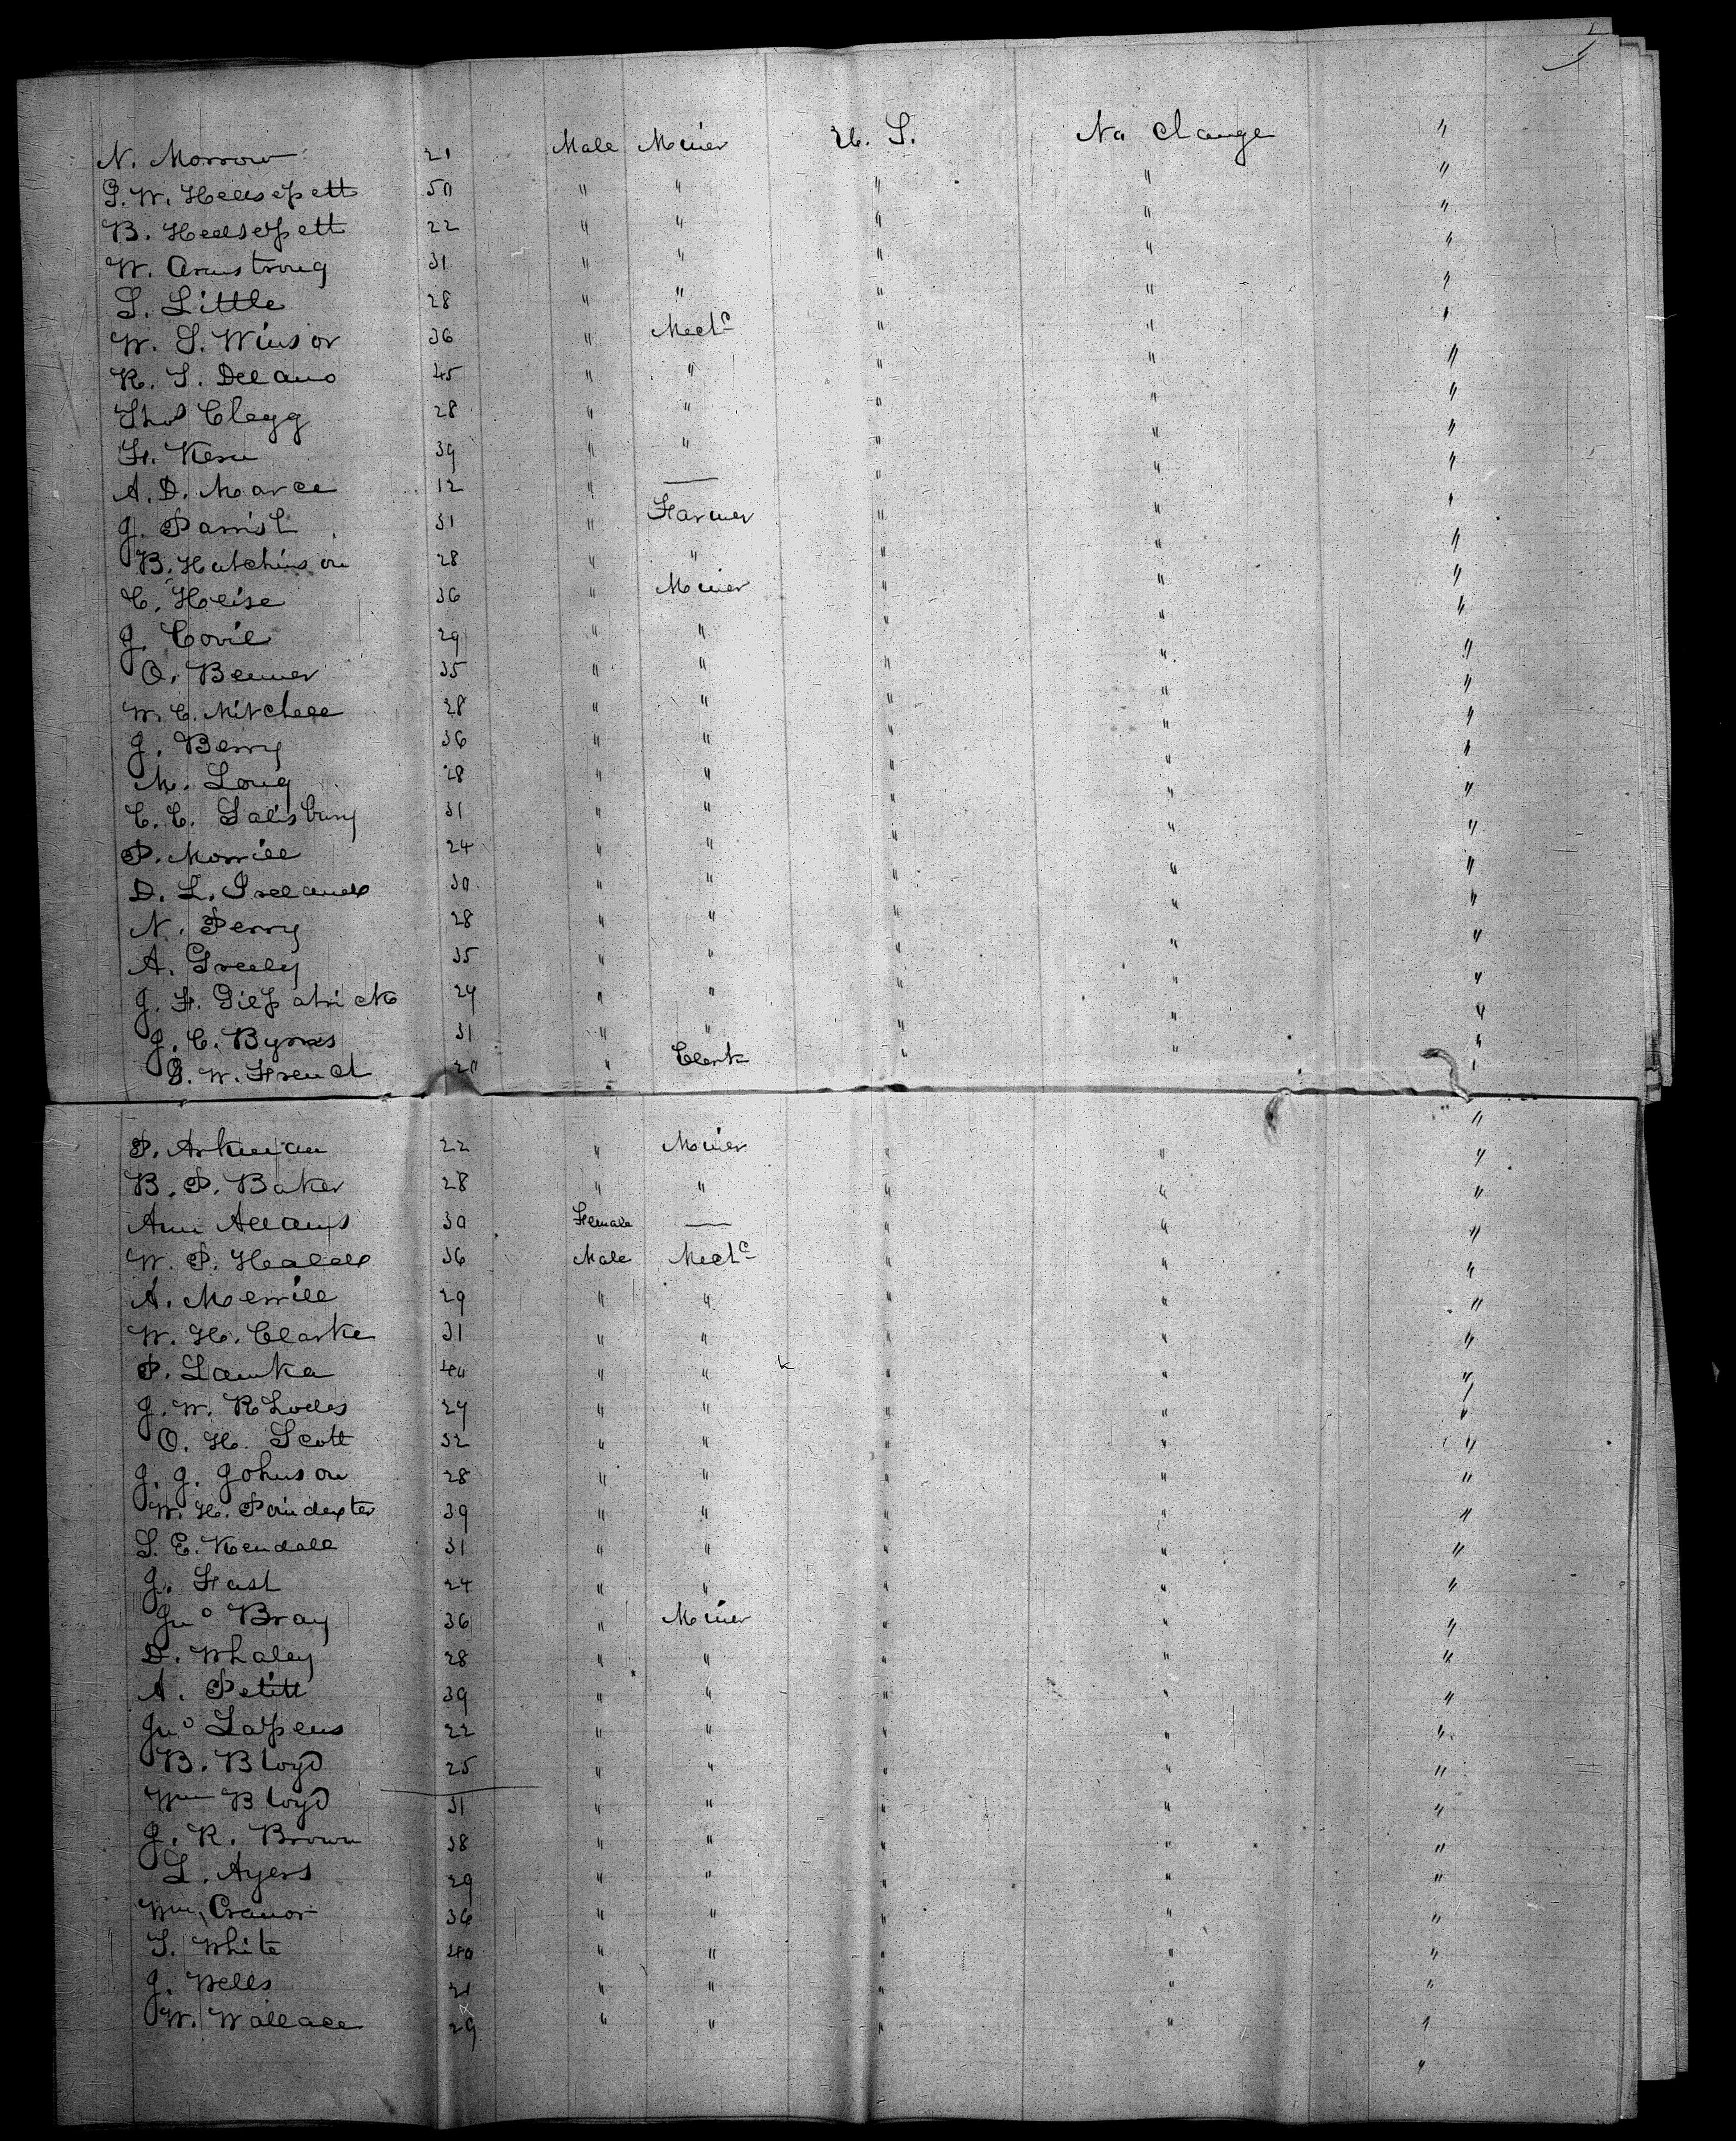 N. Morrow 21 Male Miner U. S. No Change "
G. W. 50 " " " " "
B. 22 " " " " "
W. Armstrong 31 " " " " "
S. Little 28 " " " " "
W. S. Winsor 36 " Mechc " " "
R. S. Delano 45 " " " " "
Thos Clegg 28 " " " " "
F. Kern 39 " " " " "
A. D. 12 " — " " "
J. Parrish 31 " Farmer " " "
B. Hutchinson 28 " " " " "
C. Heise 36 " Miner " " "
J. Covil 29 " " " " "
O. Benner 35 " " " " "
W. C. Mitchell 28 " " " " "
J. Berry 36 " " " " "
M. Long 28 " " " " "
C. C. Salisbury 31 " " " " "
P. Morrill 24 " " " " "
D. L. Ireland 30 " " " " "
N. Perry 28 " " " " "
A. Greely 35 " " " " "
J. F. Gilpatrick 29 " " " " "
J. C. Byrnes 31 " " " " "
G. W. French 20 " Clerk " " "
P. Arkman 22 " Miner " " "
B. P. Baker 28 " " " " "
Ann Adams 30 Female — " " "
W. P. Heald 36 Male Mechc " " "
A. Merrill 29 " " " " "
W. H. Clarke 31 " " " " "
P. Lamka 40 " " " " "
J. W. Rhodes 29 " " " " "
O. H. Scott 32 " " " " "
J. J. Johnson 28 " " " " "
W. H. Poindexter 39 " " " " "
S. E. Kendall 31 " " " " "
J. Fash 24 " " " " "
Jno Bray 36 " Miner " " "
D. Whaley 28 " " " " "
A. Petitt 39 " " " " "
Jno 22 " " " " "
B. Bloyd 25 " " " " "
Wm Bloyd 31 " " " " "
J. R. Brown 38 " " " " "
L. Ayers 29 " " " " "
Wm Cranor 36 " " " " "
S. White 40 " " " " "
J. Wells 21 " " " " "
W. Wallace 29 " " " " "